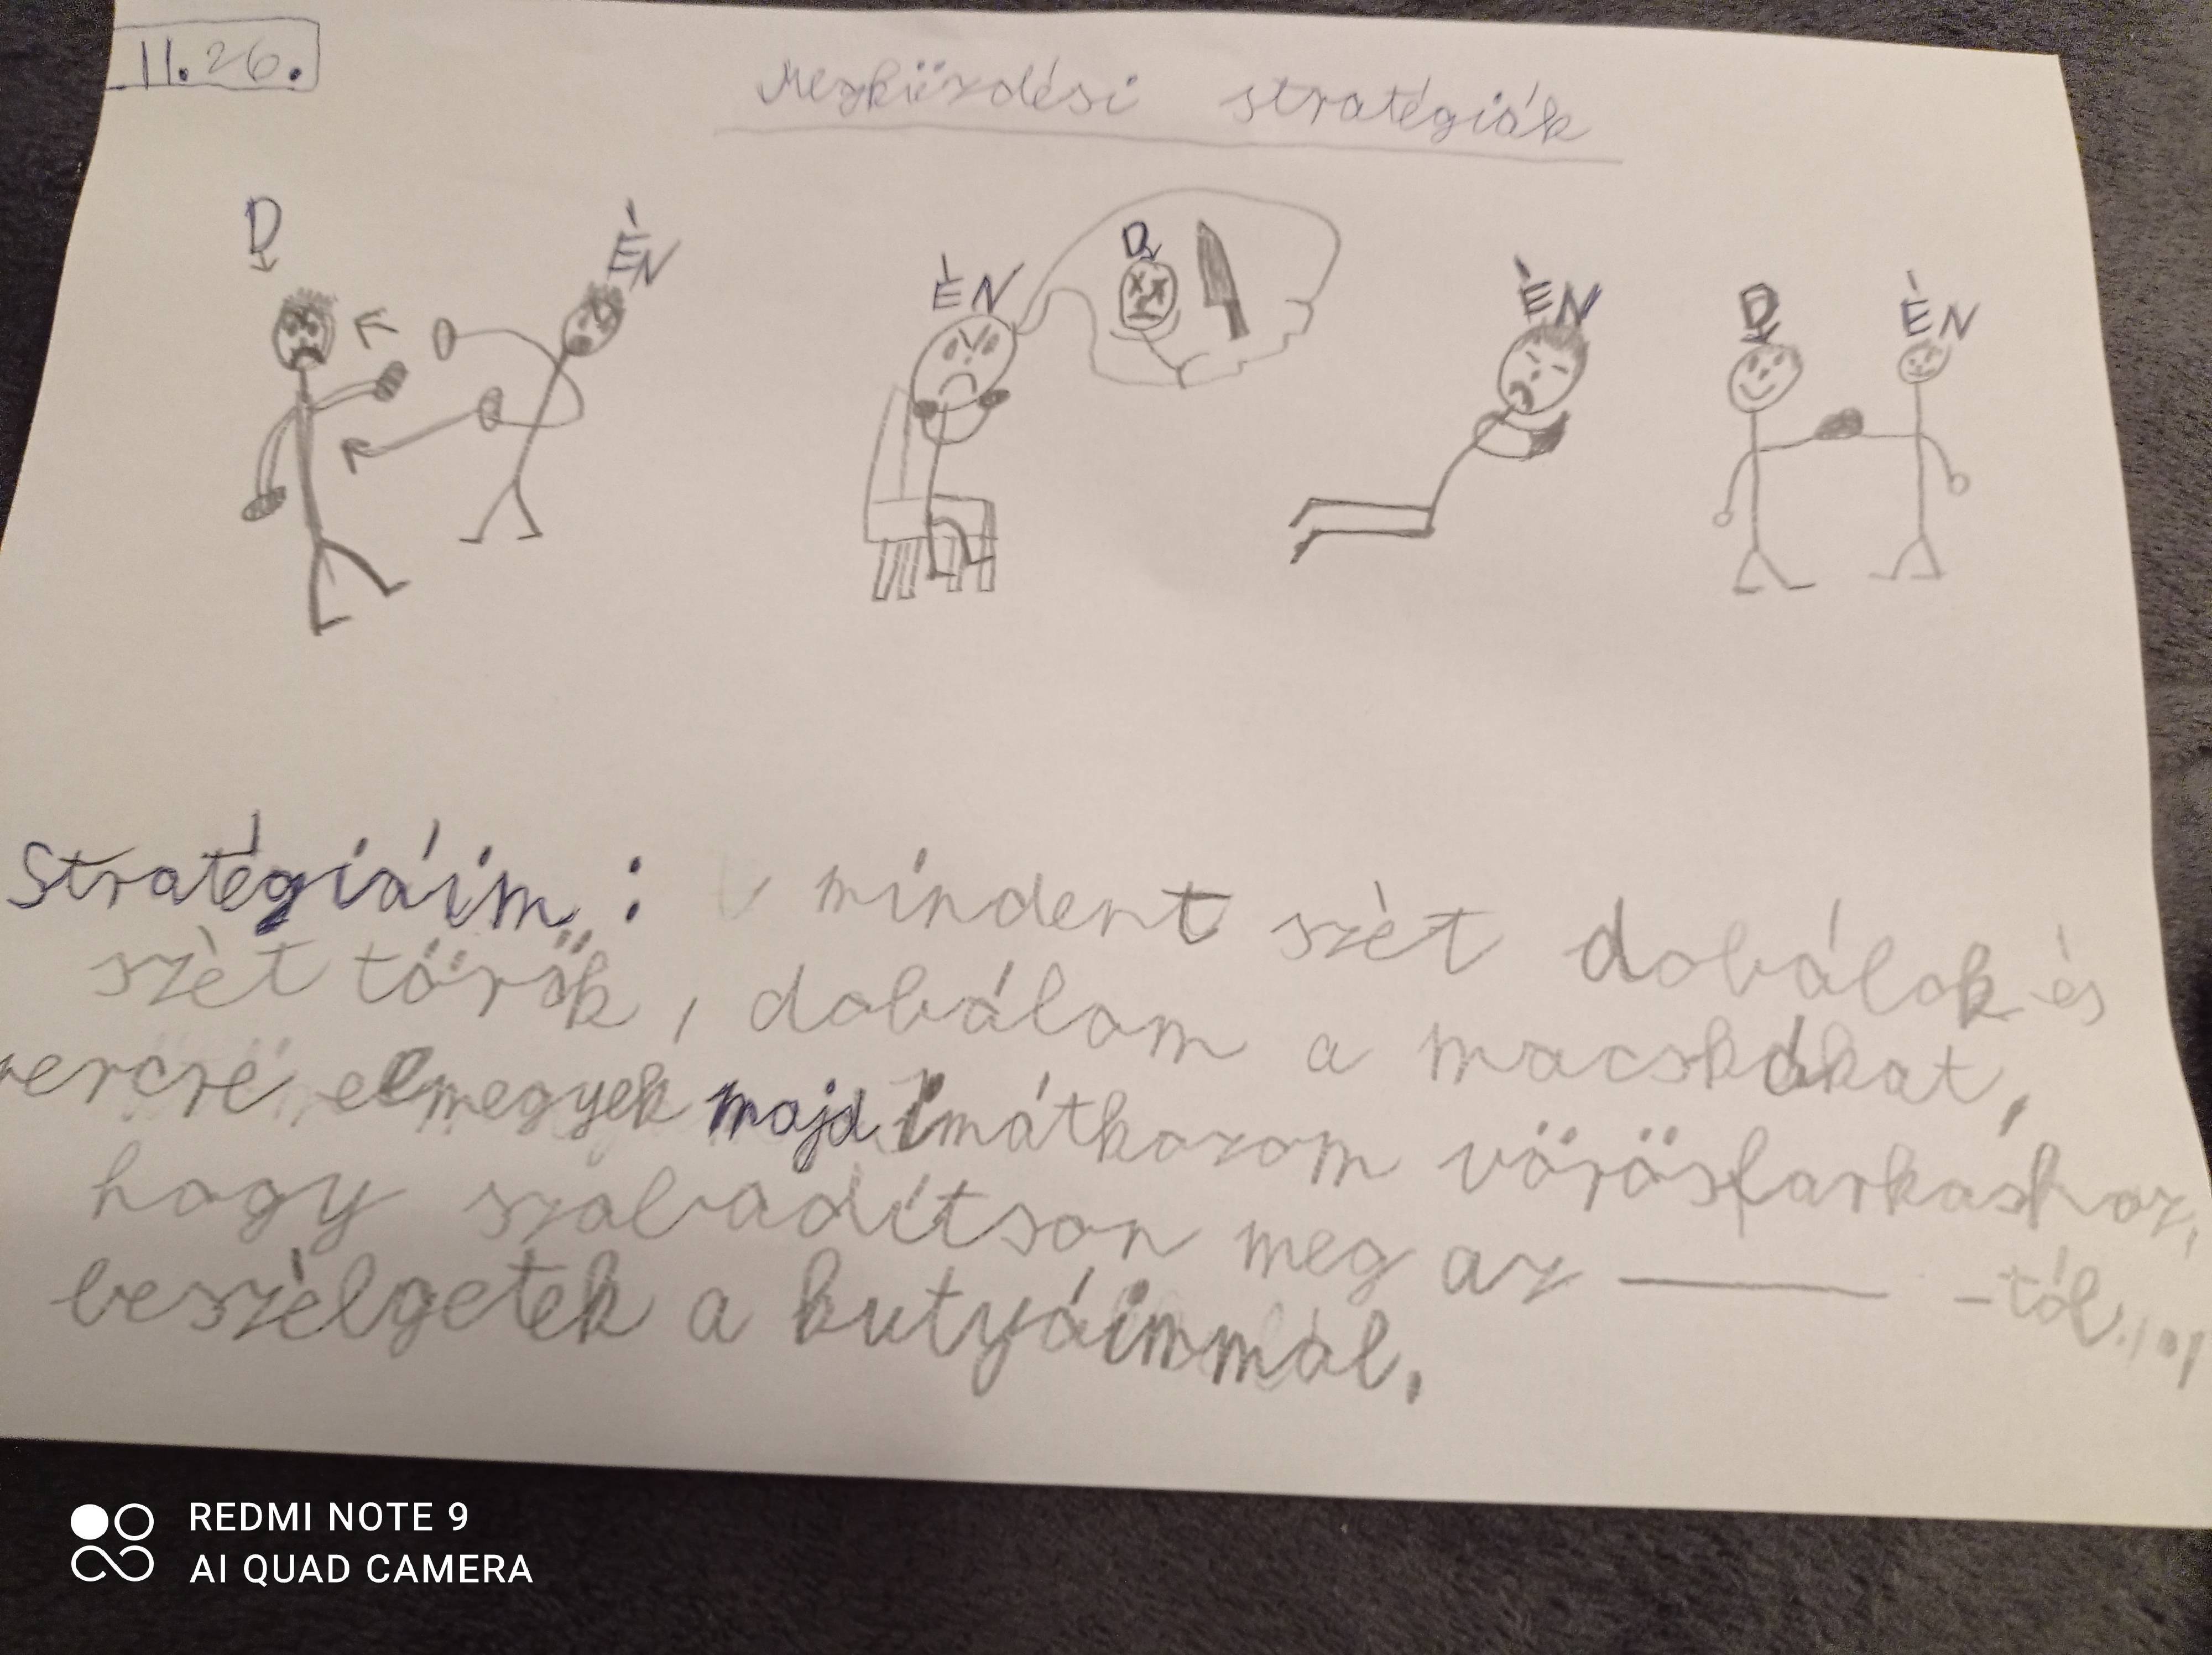 11.26.
Megküzdési stratégiák
D ÈN
ÈN D
ÈN D ÈN
Stratégiáim : mindent szèt dobálok és
szèt török, dobálom a macskákat,
elmegyek majd Imátkozom vörösfarkashoz,
hogy szabadítson meg az ——— -tól...,
beszèlgetek a kutyáimmal.
REDMI NOTE 9
AI QUAD CAMERA